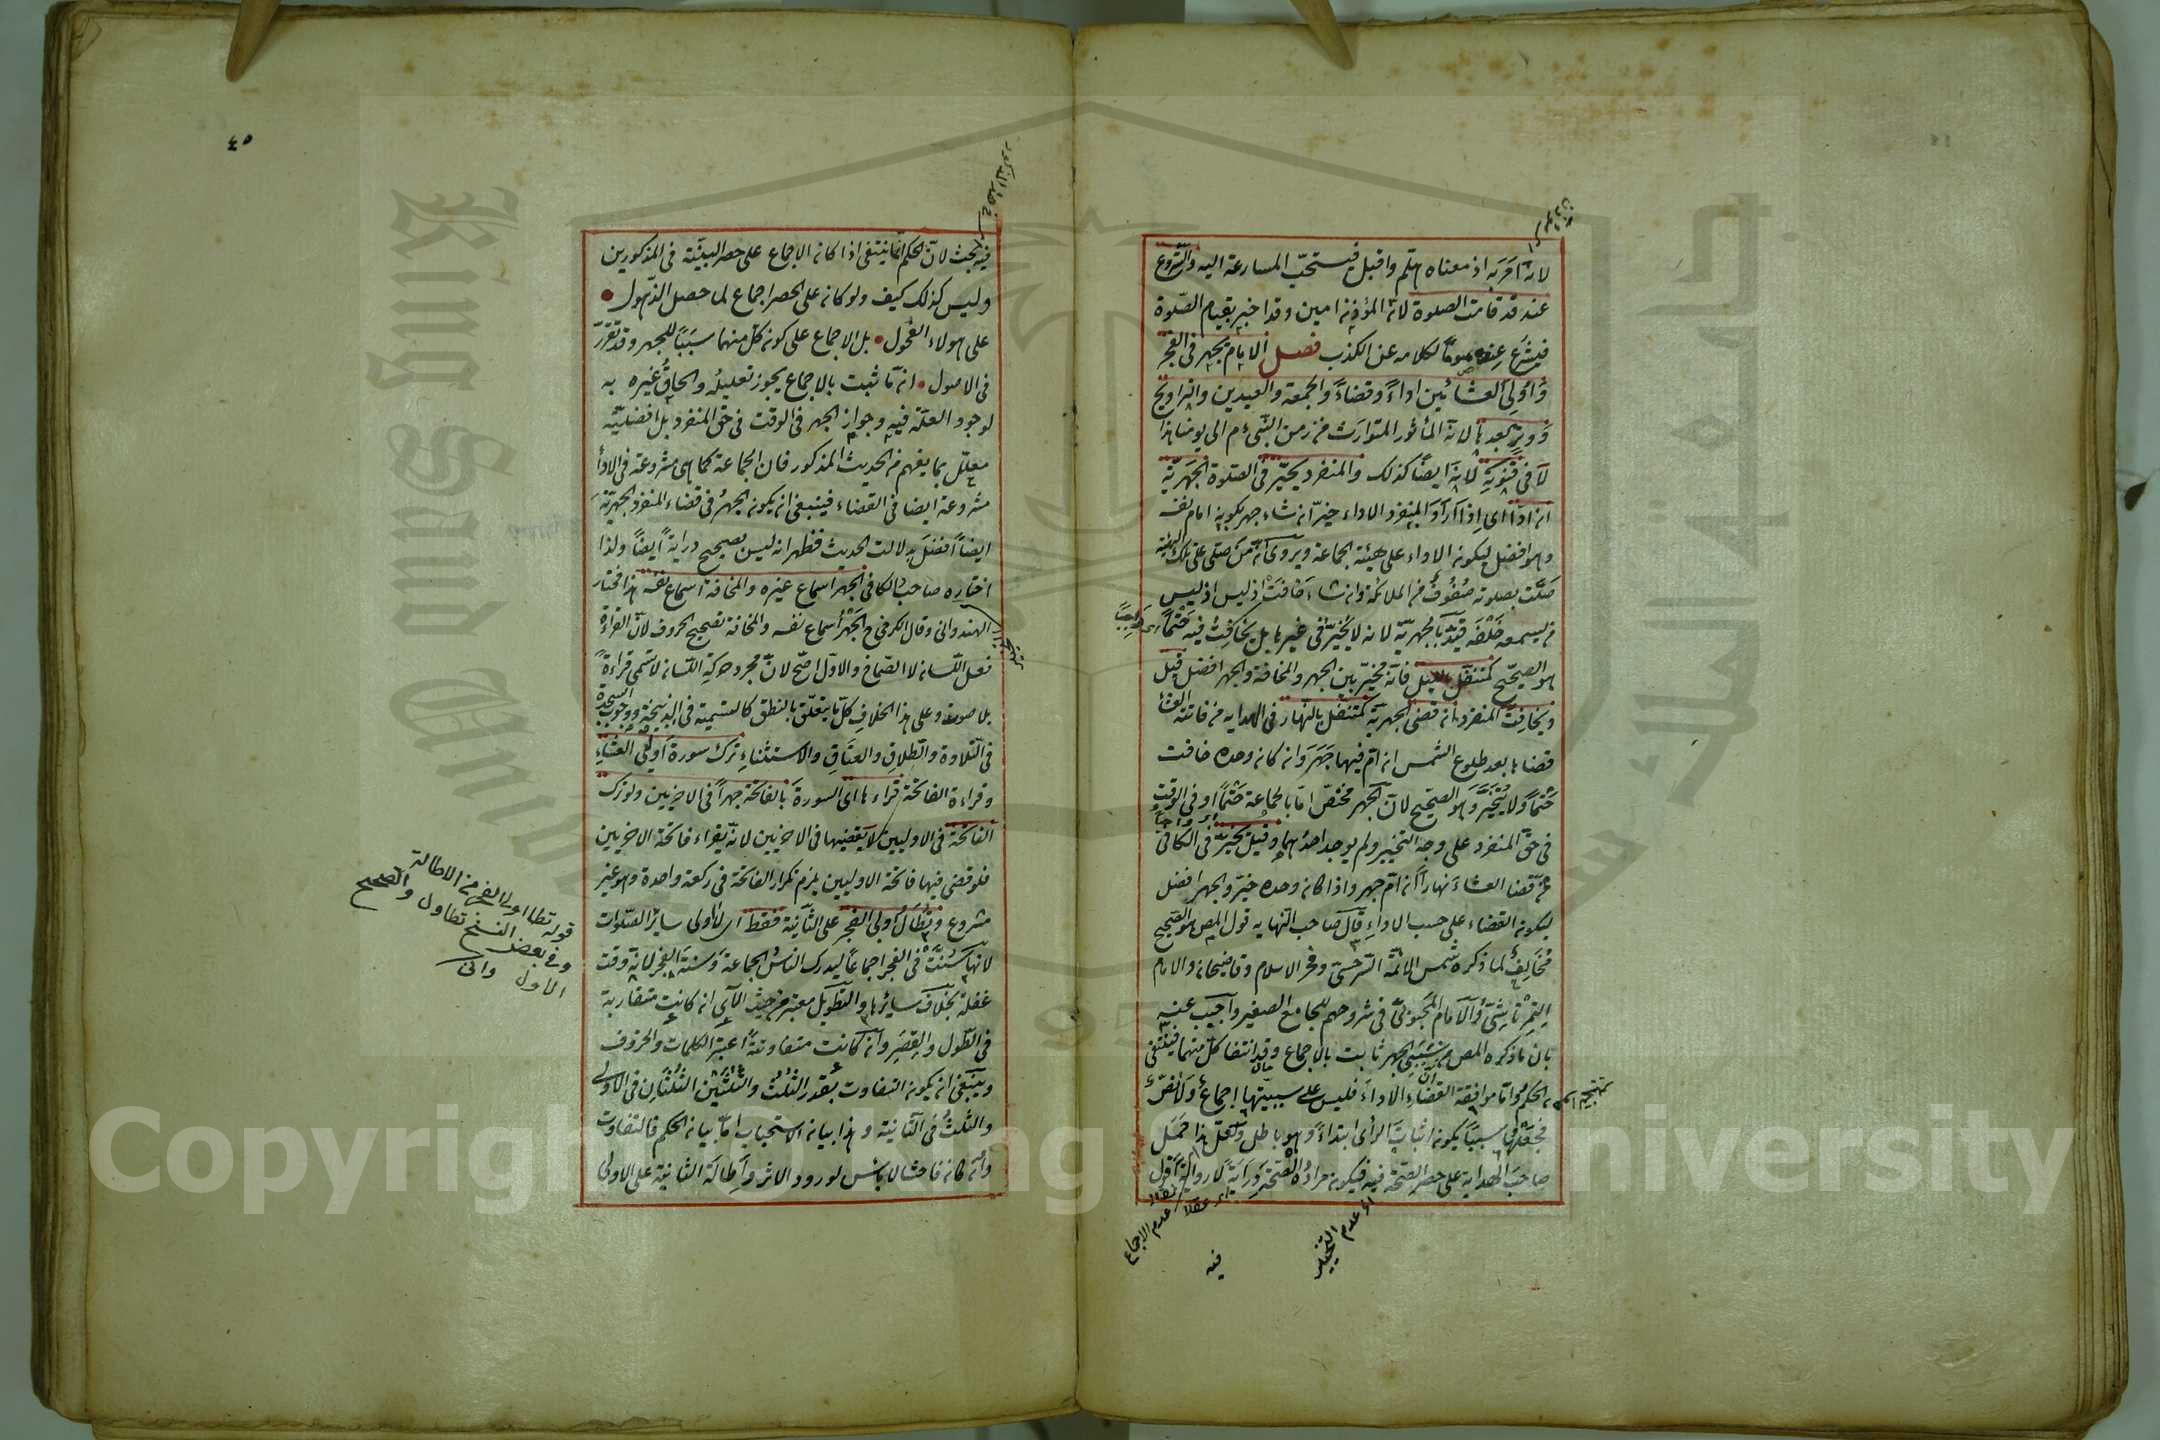 لانه امر به اذ معناه هلم واقبل فيستحب المسارعة اليه والشروع
عند قد قامت الصلوة لان المؤذن امين وقد اخبر بقيام الصلوة
فيشرع عنده صونا لكلامه عن الكذب فصل الامام يجهر فى الفجر
وأولى العشائين اداء وقضاء والجمعة والعيدين والتراويح
ووتر بعدها لانه المأثور المتوارث من زمن النبى ءم الى يومنا هذا
لا فى قنوته لانه ايضا كذلك والمنفرد يخير فى الصلوة الجهرية
ان ادا اى اذا اراد المنفرد الاداء خير ان شاء جهر لكونه امام نفسه
وهو افضل ليكون الاداء على هيئة الجماعة ويروى ان من صلى على تلك الهيئة
صلت بصلوته صفوف من الملائكة وان شاء خافت اذ ليس
من يسمعه خلفه قيد بالجهرية لانه لا يخير فى غيرها بل يخافت فيه حتما
اى واجبا
هو الصحيح كمتنفل بالليل فانه مخير بين الجهر والمخافتة والجهر افضل قيل
ويخافت المنفرد ان قضى الجهرية كمتنفل بالنهار فى الهداية من فاتته العشاء
قضاها بعد طلوع الشمس ان ام فيها جهر وان كان وحده خافت
حتما ولا يتخير وهو الصحيح لان الجهر مختص اما بالجماعة حتما او فى الوقت
فى حق المنفرد على وجه التخيير ولم يوجد احدهما وقيل يخير فى الكافى
قضا العشاء نهارا ان ام جهر واذا كان وحده خير والجهر افضل
ليكون القضاء على حسب الاداء قال صاحب النهاية قول المص هو الصحيح
مخالف لما ذكره شمس الائمة السرخسى وفخر الاسلام وقاضيخان والامام
التمرتاشى والامام المحبوبى فى شروحهم للجامع الصغير واجيب عنه
بان ما ذكره المص من سببى الجهر ثابت بالاجماع وقد انتفا كل منهما فينتفى
الحكم واما موافقة القضاء الاداء فليس على سببيتها اجماع ولا نص
فجعلها سببا يكون اثبات بالرأى ابتداء وهو باطل ولعل هذا حمل
صاحب الهداية على حصر الصحة فيه فيكون مراده الصحة دراية لا رواية اقول
اى عدم التخيير
اى عقلا
عدم الاجماع
فيه
٤٥
فيه بحث لان الحكم انما ينتفى اذا كان الاجماع على حصر السببية فى المذكورين
وليس كذلك كيف ولو كان على الحصر اجماع لما حصل الذهول
على هولاء الفحول بل الاجماع على كون كل منهما سببا للجهر وقد تقرر
فى الاصول ان ما ثبت بالاجماع يجوز تعليله والحاق غيره به
لوجود العلة فيه وجواز الجهر فى الوقت فى حق المنفرد بل افضليته
معلل بما يفهم من الحديث المذكور فان الجماعة كما هى مشروعة فى الادأ
مشروعة ايضا فى القضاء فينبغى ان يكون الجهر فى قضاء المنفرد الجهرية
ايضا افضل بدلالت الحديث فظهر انه ليس بصحيح دراية ايضا ولذا
اختاره صاحب الكافى الجهر اسماع غيره والمخافتة اسماع نفسه هذا مختار
الهندوانى وقال الكرخى ح الجهر اسماع نفسه والمخافتة تصحيح الحروف لان القراءة
فعل اللسان لا الصماخ والاول اصح لان مجرد حركة اللسان لا تسمى قراءة
بلا صوت وعلى هذا الخلاف كل ما يتعلق بالنطق كالتسمية فى الذبيحة ووجوب السجدة
فى التلاوة والطلاق والعتاق والاستثناء ترك سورة اولى العشاء
وقراءة الفاتحة قراءها اى السورة بالفاتحة جهرا فى الاخريين ولو ترك
الفاتحة فى الاوليين لا يقضيها فى الاخريين لانه يقراء فاتحة الاخريين
فلو قضى فيها فاتحة الاوليين يلزم تكرار الفاتحة فى ركعة واحدة وهو غير
مشروع وتطال اولى الفجر على الثانية فقط اى لا اولى سائر الصلوات
لانها سنت فى الفجر اجماعا ليدرك الناس الجماعة وسنة الفجر لانه وقت
غفلة بخلاف سائرها والتطويل معتبر من حيث الآى ان كانت متقاربة
فى الطول والقصر وان كانت متفاوتة اعتبر الكلمات والحروف
وينبغى ان يكون التفاوت بقدر الثلث والثلثين الثلثان فى الاولى
والثلث فى الثانية وهذا بيان الاستحباب اما بيان الحكم فالتفاوت
وان كان فاحشا لا بأس لورود الاثر واطالة الثانية على الاولى
قوله تطال اولى الفجر من الاطالة
وفى بعض النسخ تطاول والصحيح
الاول وانى